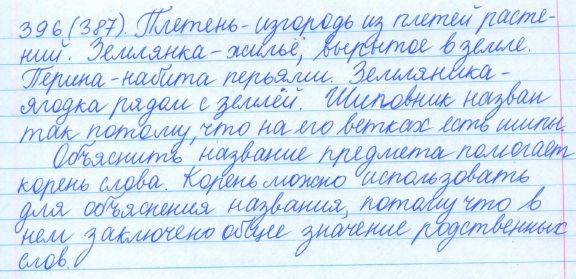 396 (387). Плетень-изгородь из плетей расте-
ний. Землянка-жильё, вырытое в земле.
Перина-набита перьями. Земляника-
ягодка рядом с землёй. Шиповник назван
так потому, что на его ветках есть шипы.
Объяснить название предмета помогает
корень слова. Корень можно использовать
для объяснения названия, потому что в
нем заключено общее значение родственных
слов.